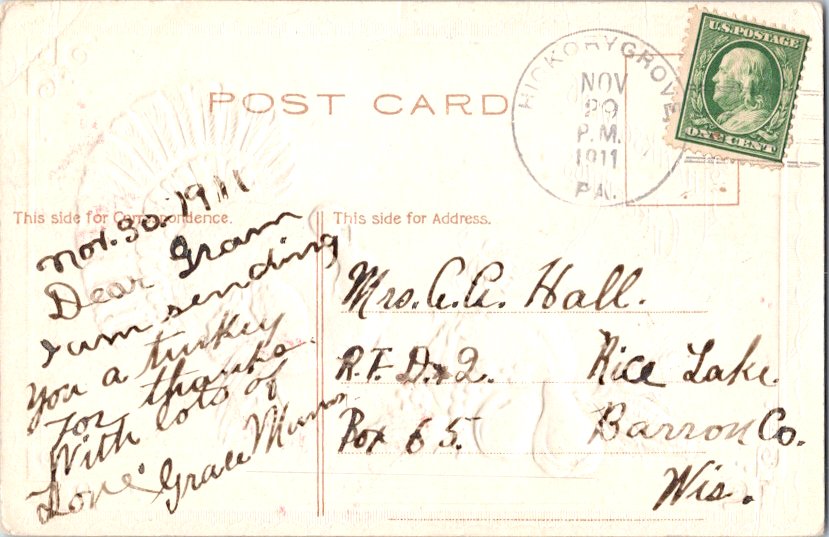 POST CARD
HICKORYGROVE
NOV
29
P.M.
1911
PA.
U.S. POSTAGE
ONE CENT
This side for Correspondence.
This side for Address.
Nov. 30. 1911
Dear Gram
I am sending
you a turkey
For thanks.
With lots of
Love. Grace
Mrs. A. A. Hall.
R.F.D. 2. Rice Lake.
Box 65. Barron Co.
Wis.